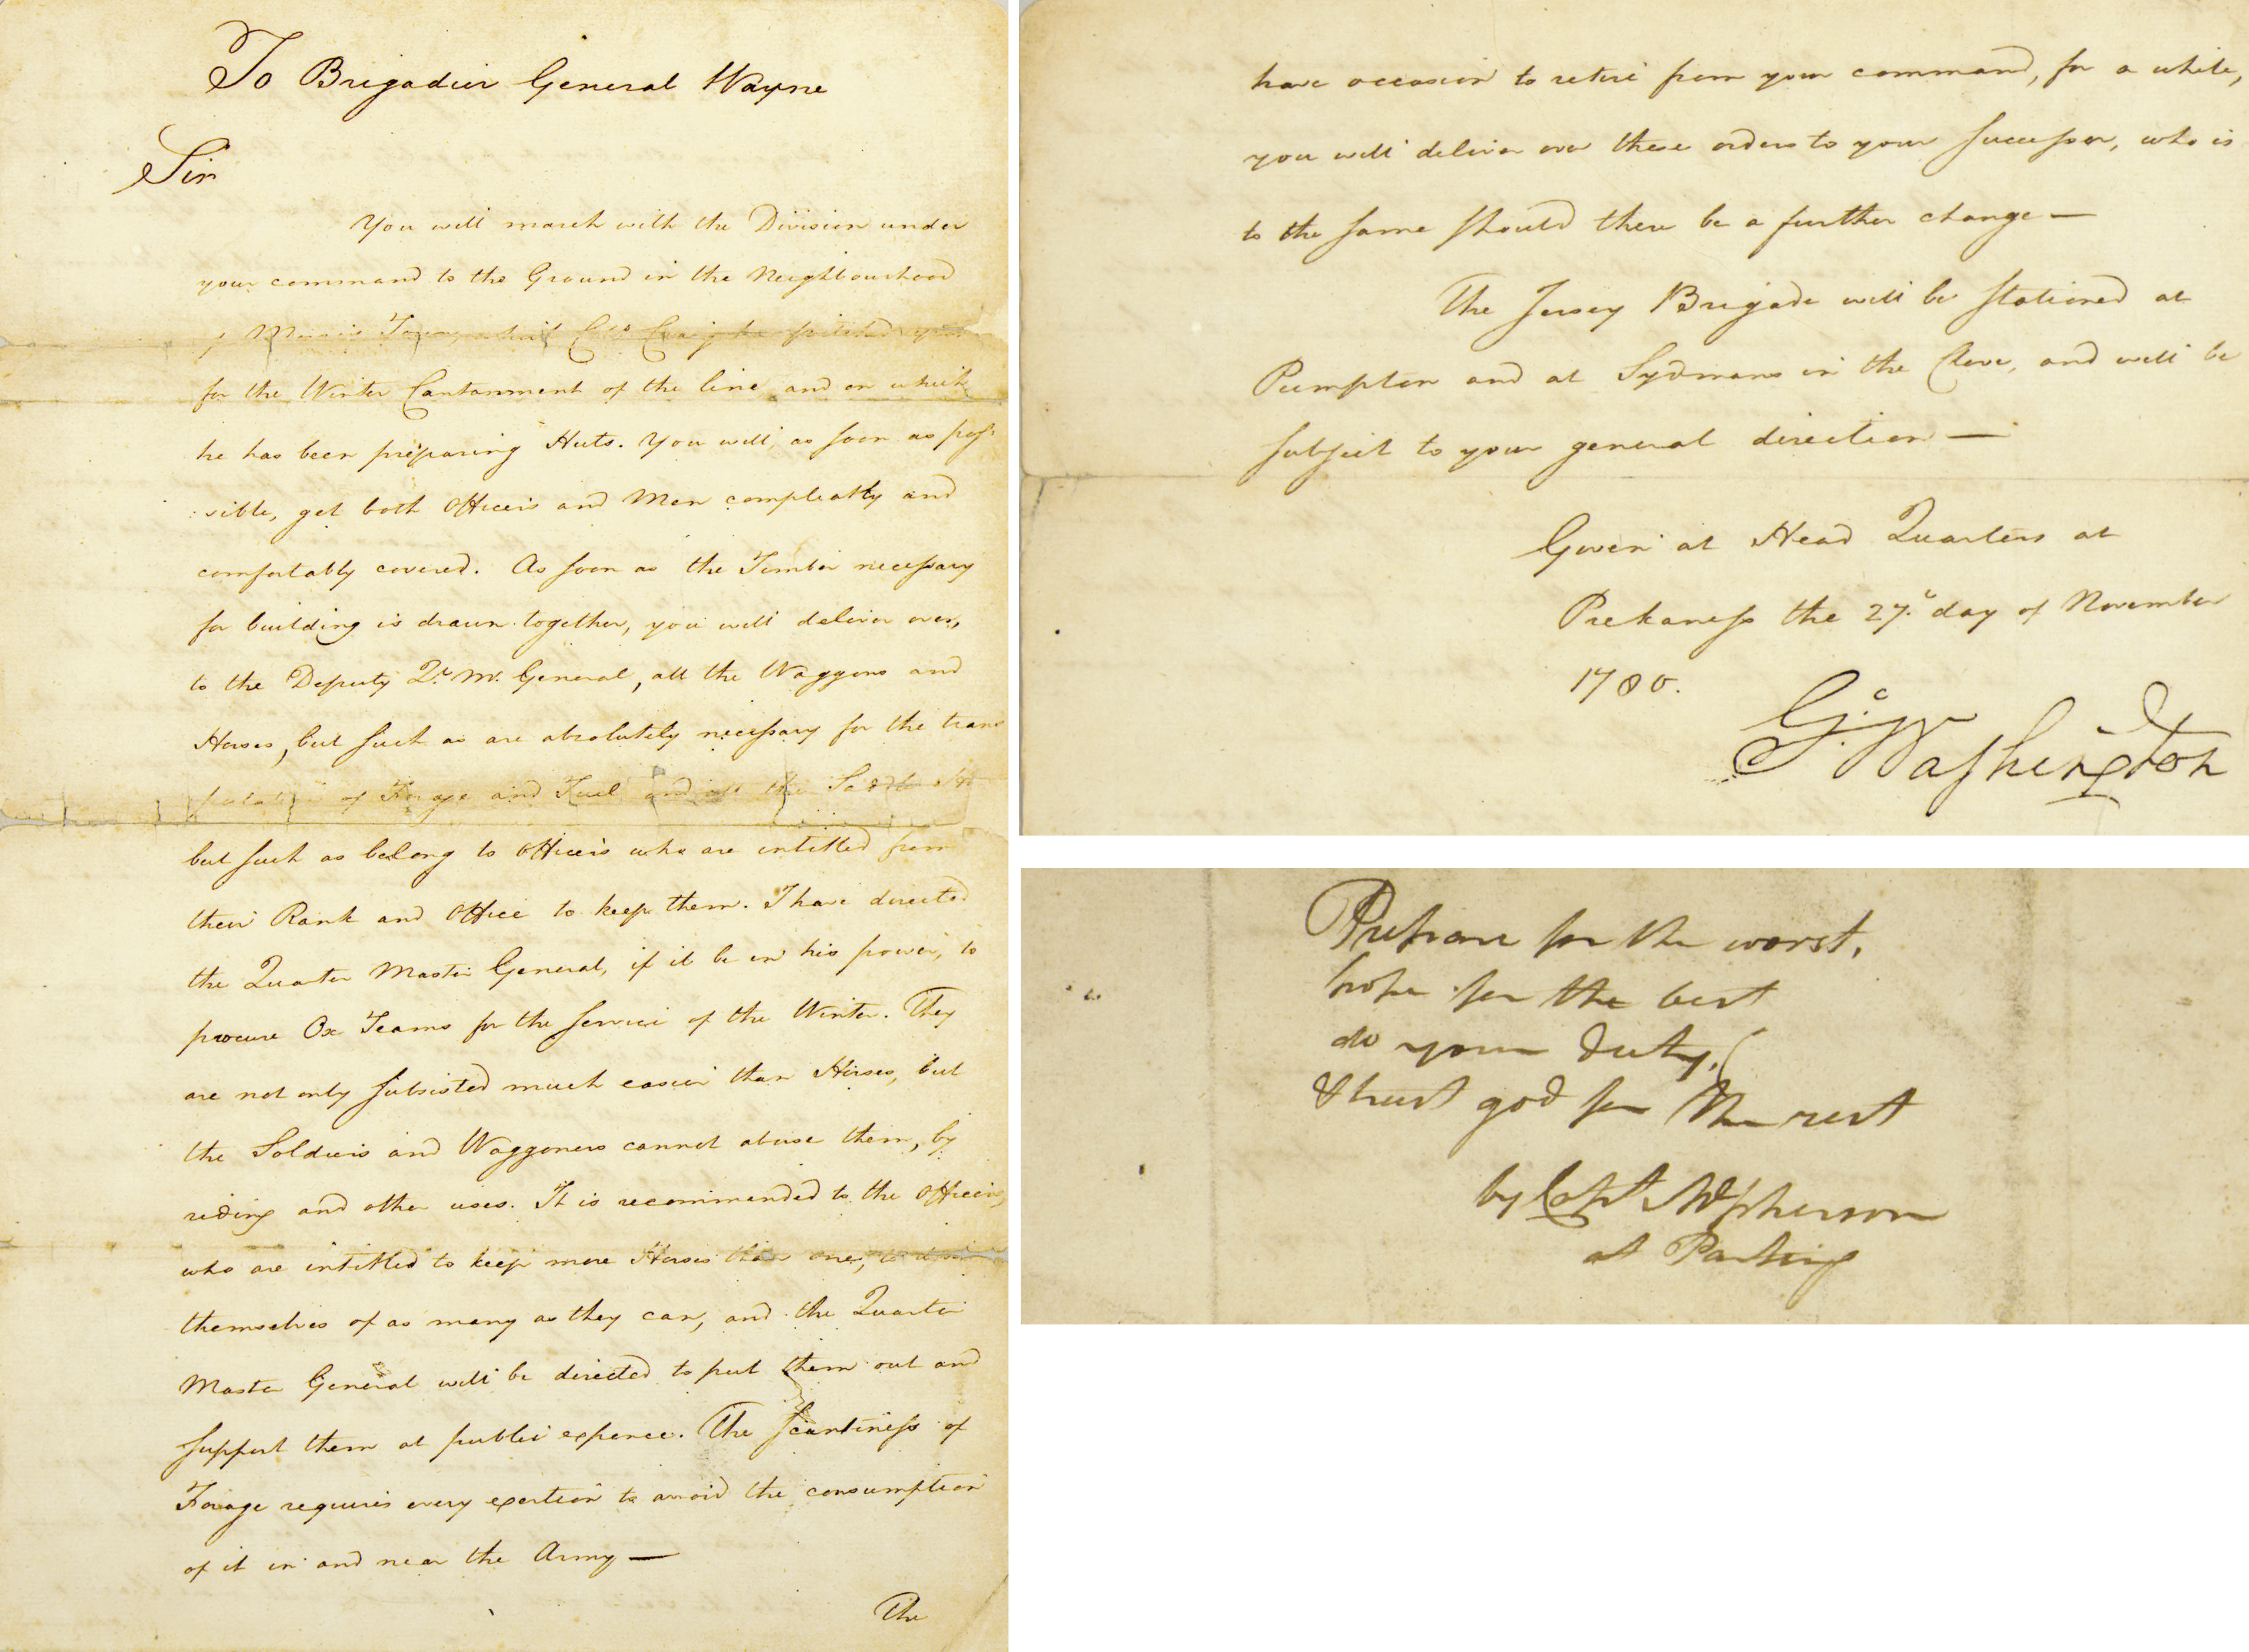 To Brigadier General Wayne
Sir
You will march with the Division under
your command to the Ground in the Neighbourhood
of Morris Town, which Colo Craig has pitched upon
for the Winter Cantonment of the line, and on which
he has been preparing Huts. You will, as soon as pos
:sible, get both Officers and Men compleatly and
comfortably covered. As soon as the Timber necessary
for building is drawn together, you will deliver over,
to the Deputy Qr Mr General, all the Waggons and
Horses, but such as are absolutely necessary for the trans
portation of Forage and Fuel and all the Saddle
but such as belong to Officers who are intitled from
their Rank and Office to keep them. I have directed
the Quarter Master General, if it be in his power, to
procure Ox Teams for the service of the Winter. They
are not only subsisted much easier than Horses, but
the Soldiers and Waggoners cannot abuse them, by
riding and other uses. It is recommended to the Officers,
who are intitled to keep more Horses than one, to
themselves of as many as they can, and the Quarter
Master General will be directed to put them out and
support them at public expence. The scantiness of
Forage requires every exertion to avoid the consumption
of it in and near the Army —
The
have occasion to retire from your command, for a while,
you will deliver over these orders to your successor, who is
to the same should there be a further change —
The Jersey Brigade will be stationed at
Pumpton and at Sydmans in the Clove, and will be
subject to your general direction —
Given at Head Quarters at
Prekaness the 27. day of November
1780.
Go: Washington
Prepare for the worst,
hope for the best
do your duty,
& trust god for the rest
by Capt McPherson
at Parting